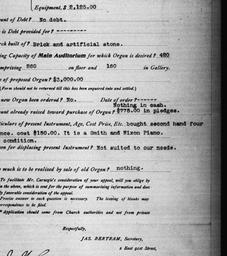 Equipment, $ 2,125.00
unt of Debt? No debt.
is Debt provided for?
rch built of? Brick and artificial stone.
ing Capacity of Main Auditorium for which Organ is desired? 480
omprising 320 on floor and 160 in Gallery.
of proposed Organ? $3,000.00
(Form should not be returned till this has been enquired into and settled.)
new Organ been ordered? No. Date of order?
Nothing in cash.
ount already raised toward purchase of Organ? $775.00 in pledges.
ticulars of present Instrument, Age, Cost Price, Etc. bought second hand four
ence. cost $150.00. It is a Smith and Nixon Piano.
condition.
son for displacing present Instrument? Not suited to our needs.
much is to be realized by sale of old Organ? nothing.
To facilitate Mr. Carnegie's consideration of your appeal, will you oblige by
in the above, which is sent for the purpose of summarizing information and does
ly favorable consideration of the appeal.
Precise answer to each question is necessary. The leaving of blanks may
rrespondence to be filed.
Application should come from Church authorities and not from private
Respectfully,
JAS. BERTRAM, Secretary,
2 East 91st Street,